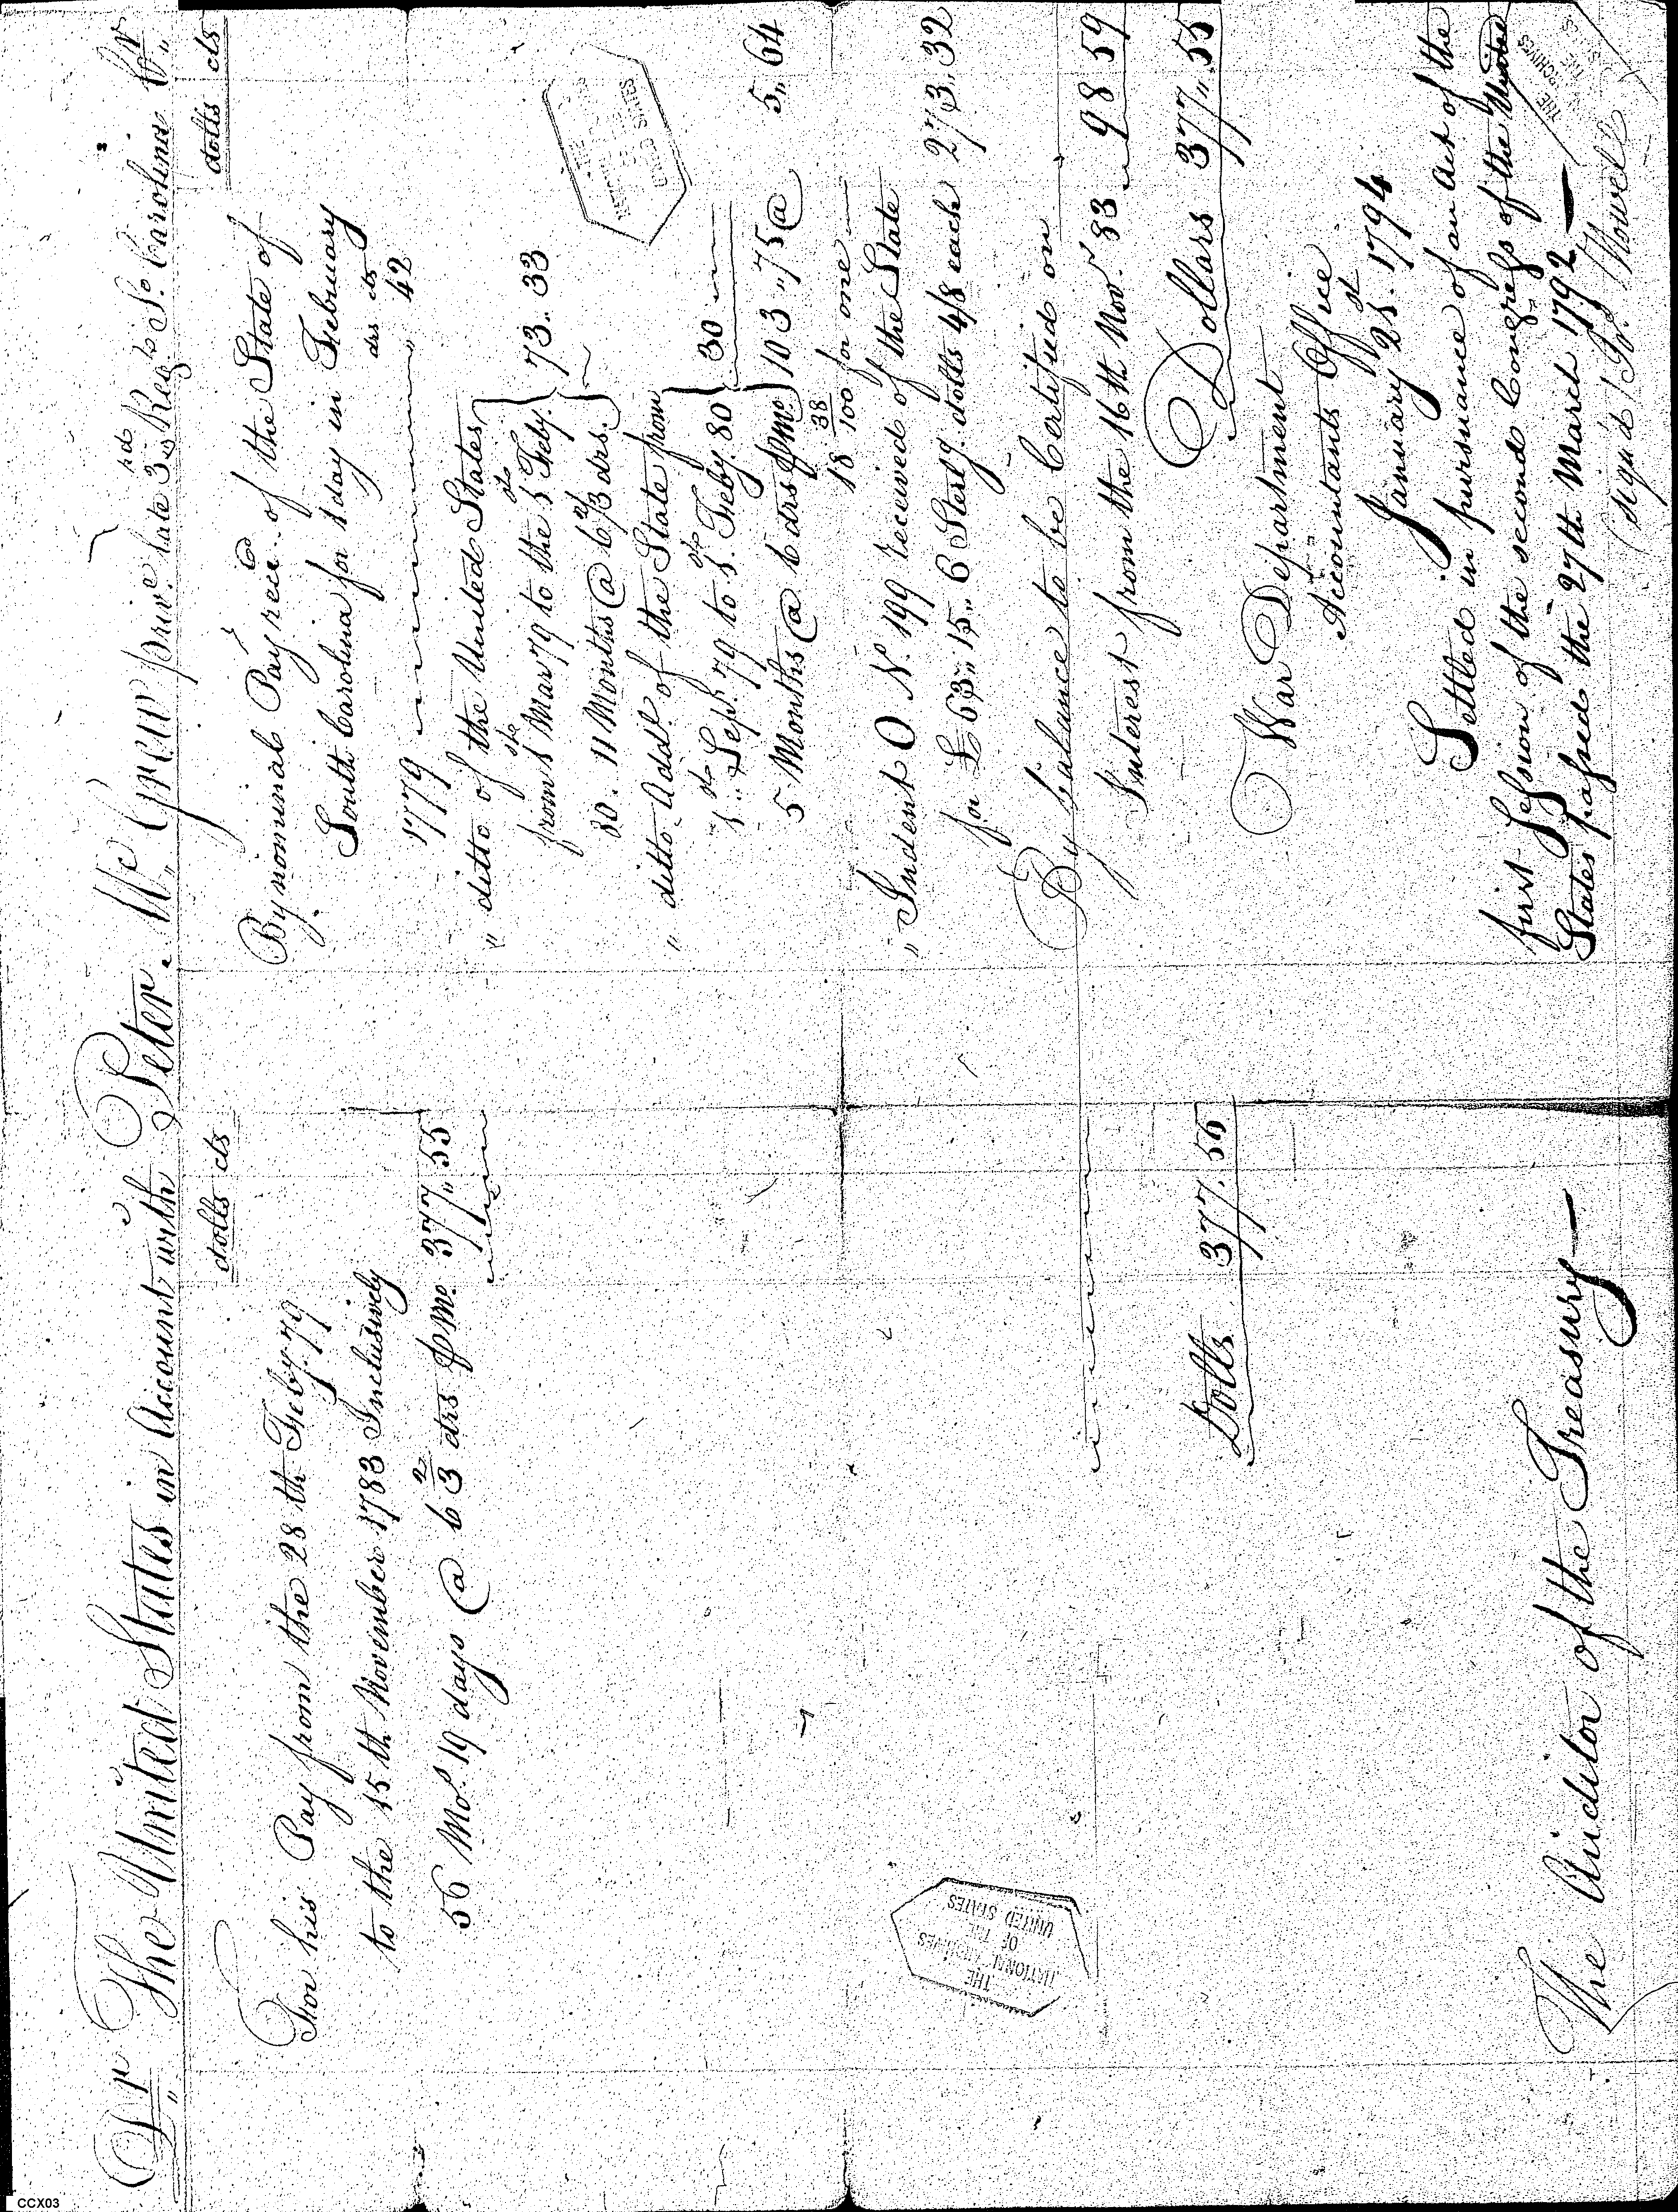 Dr The United States in Account with Peter McGrew priv.e late 3rd Reg.t So Carolina Cr
dolls cts
For his Pay from the 28th Feby. 79
to the 15th November 1783 Inclusively
56 Mos. 19 days @ 6 2/3 drs pr Mo. 377,, 55
Dolls 377. 55
The Auditor of the Treasury—
dolls cts
By nominal Pay rec.d of the State of
South Carolina for 1 day in February
drs cts
1779 42
" ditto of the United States
from 1st Mar 79 to the 1st Feby.
80. 11 Months @ 6 2/3 drs. 73.. 33
" ditto Addl of the State from
1st Sept. 79 to 1st Feby. 80 30
5 Months @ 6 drs pr Mo 103,, 75 @ 5,, 64
18 38/100 for one
" Indent O No. 199 received of the State
for £63,, 15,, 6 Sterlg. dolls 4/8 each 273,, 32
By balance to be Certified on
Interest from the 16th Nov.r 83 98 59
Dollars 377,, 55
War Department
Accountants Office
January 21st. 1794
Settled in pursuance of an Act of the
first Session of the second Congress of the United
States passed the 27th March 1792—
(sign'd) Howell
THE
NATIONAL ARCHIVES
OF THE
UNITED STATES
THE
NATIONAL ARCHIVES
OF THE
UNITED STATES
CCX03